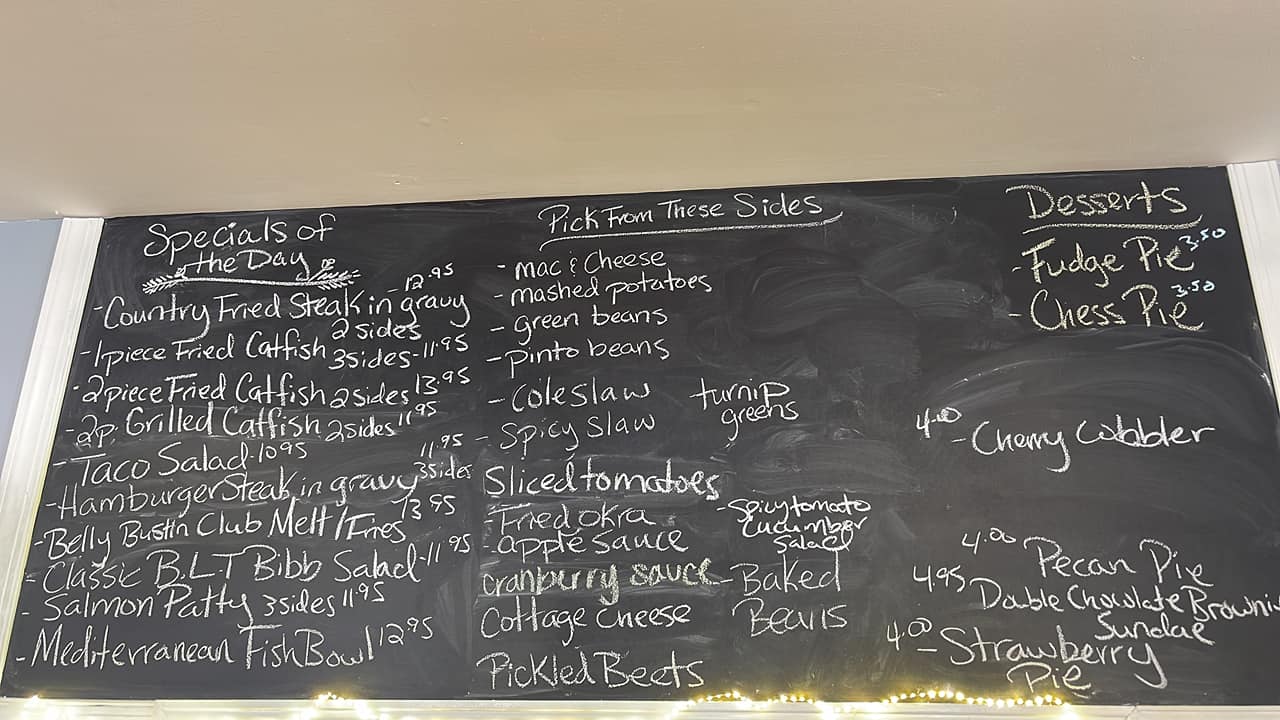 Specials of
the Day
- 12.95
- Country Fried Steak in gravy
2 sides
- 1 piece Fried Catfish 3 sides - 11.95
- 2 piece Fried Catfish 2 sides 13.95
- 2p. Grilled Catfish 2 sides 11.95
- Taco Salad - 10.95
11.95
- Hamburger Steak in gravy 3 sides
- Belly Bustin Club Melt / Fries 13.95
- Classic B.L.T Bibb Salad - 11.95
- Salmon Patty 3 sides 11.95
- Mediterranean Fish Bowl 12.95
Pick From These Sides
- mac & Cheese
- mashed potatoes
- green beans
- pinto beans
- coleslaw
- spicy slaw
Sliced tomatoes
- Fried okra
- apple sauce
cranberry sauce
Cottage Cheese
Pickled Beets
turnip
greens
- spicy tomato
cucumber
salad
- Baked
Beans
Desserts
- Fudge Pie 3.50
- Chess Pie 3.50
4.00 - Cherry Cobbler
4.00 Pecan Pie
4.95 Double Chocolate Brownie
Sundae
4.00 - Strawberry
Pie